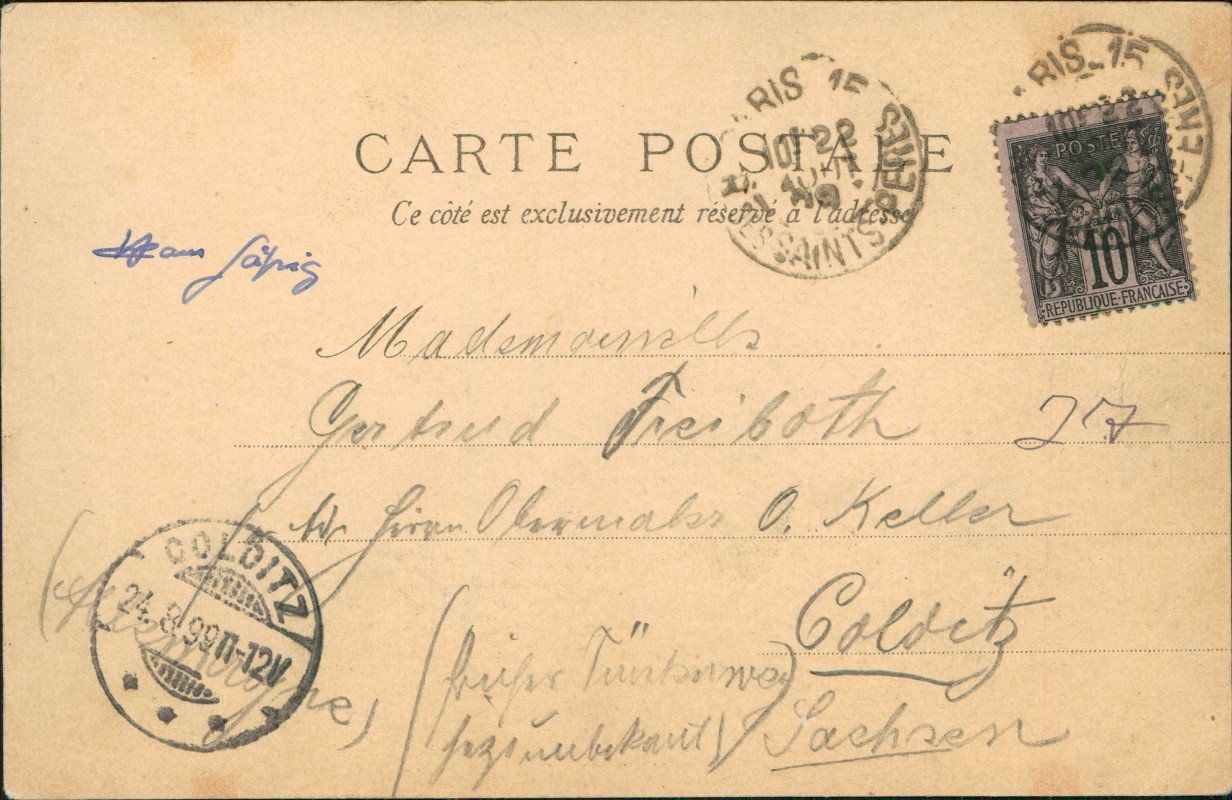 CARTE POSTALE
Ce côté est exclusivement réservé à l'adresse
PARIS 15
10E 22
AOUT
99
R. DES SAINTS-PERES
PARIS 15
10E 22
PERES
POSTES
10
REPUBLIQUE·FRANÇAISE
Mademoiselle
Gertrud Freiboth
27
Herrn O. Keller
COLDITZ
24.8.99 11-12V
(Allemagne)
Colditz
(früher
Sachsen